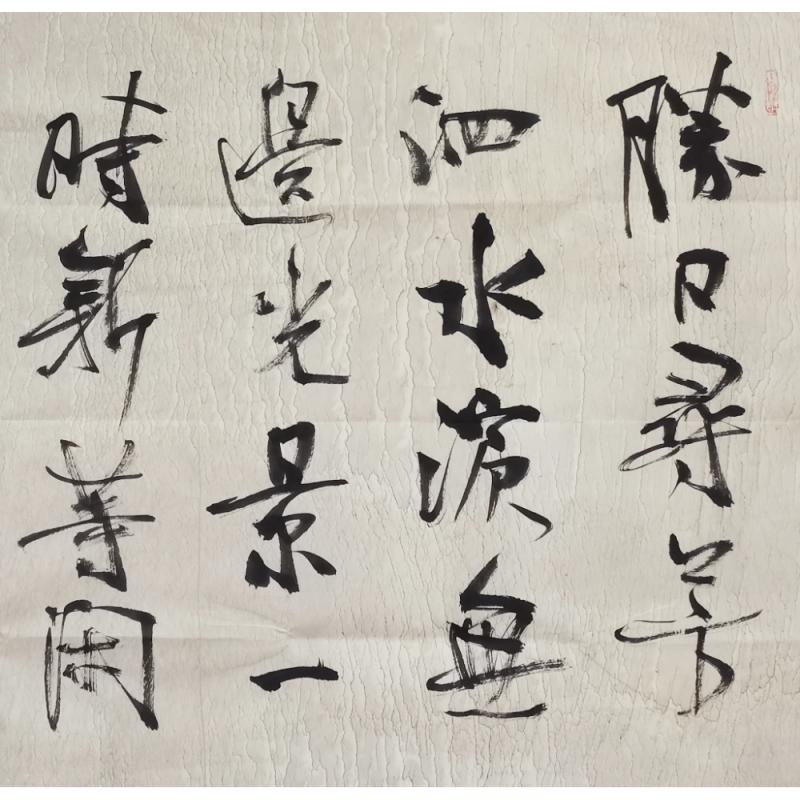 勝日尋芳
泗水濱無
邊光景一
時新等閑